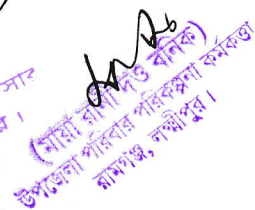 সাহ
(মায়া রানী দত্ত বনিক)
উপজেলা পরিবার পরিকল্পনা কর্মকর্তা
রামগঞ্জ, লক্ষ্মীপুর।